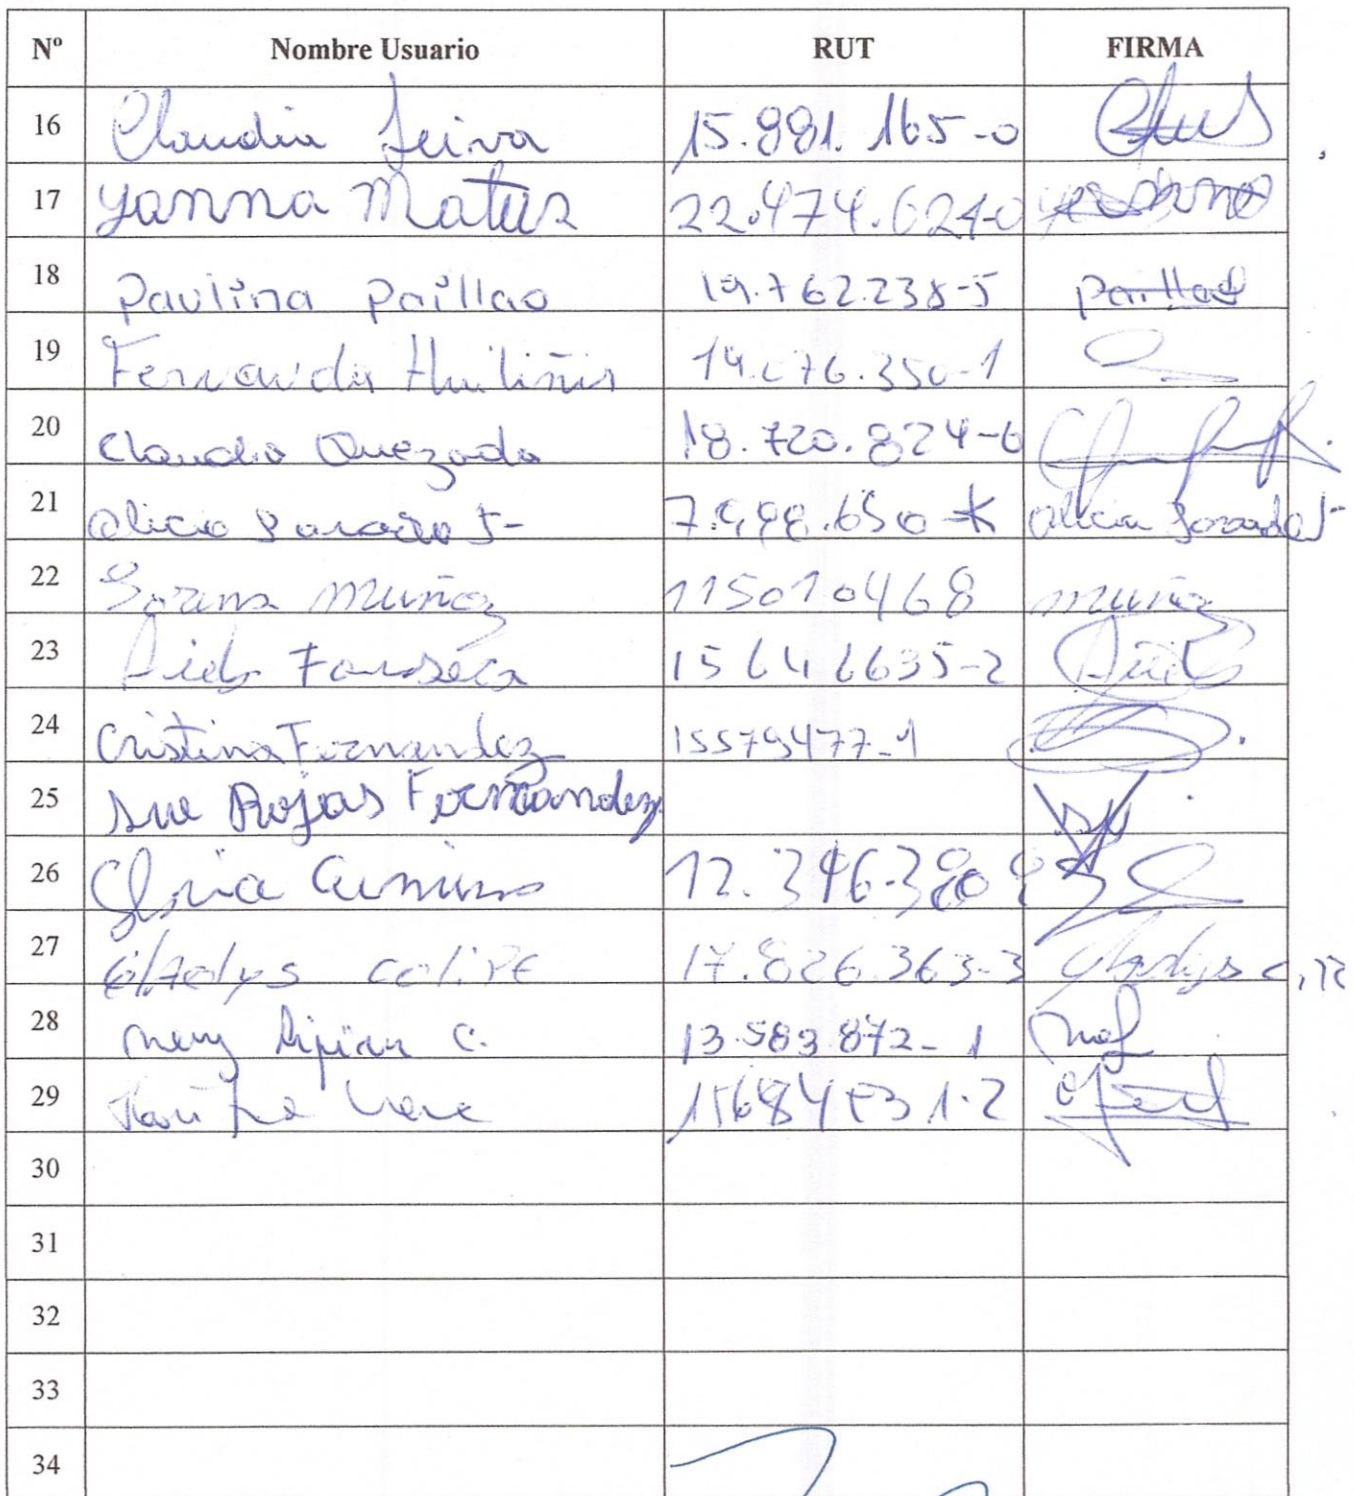 Nº Nombre Usuario RUT FIRMA
16 Claudia Leiva 15.881.165-0
17 Yanna Matus 22.474.624-0
18 Paulina Paillao 19.762.238-5 Paillao
19 Fernanda 14.676.350-1
20 Claudia Quezada 18.720.824-6
21 Alicia 7.998.650-K Alicia
22 Muñoz 115010468 Muñoz
23 Fonseca 15646635-2
24 Cristina Fernandez 15579477-1
25 Sue Rojas Fernandez
26 Gloria 12.346.380
27 Gladys Colipe 17.826.363-3 Gladys
28 Nery Lipian C. 13.583.872-1
29
30
31
32
33
34